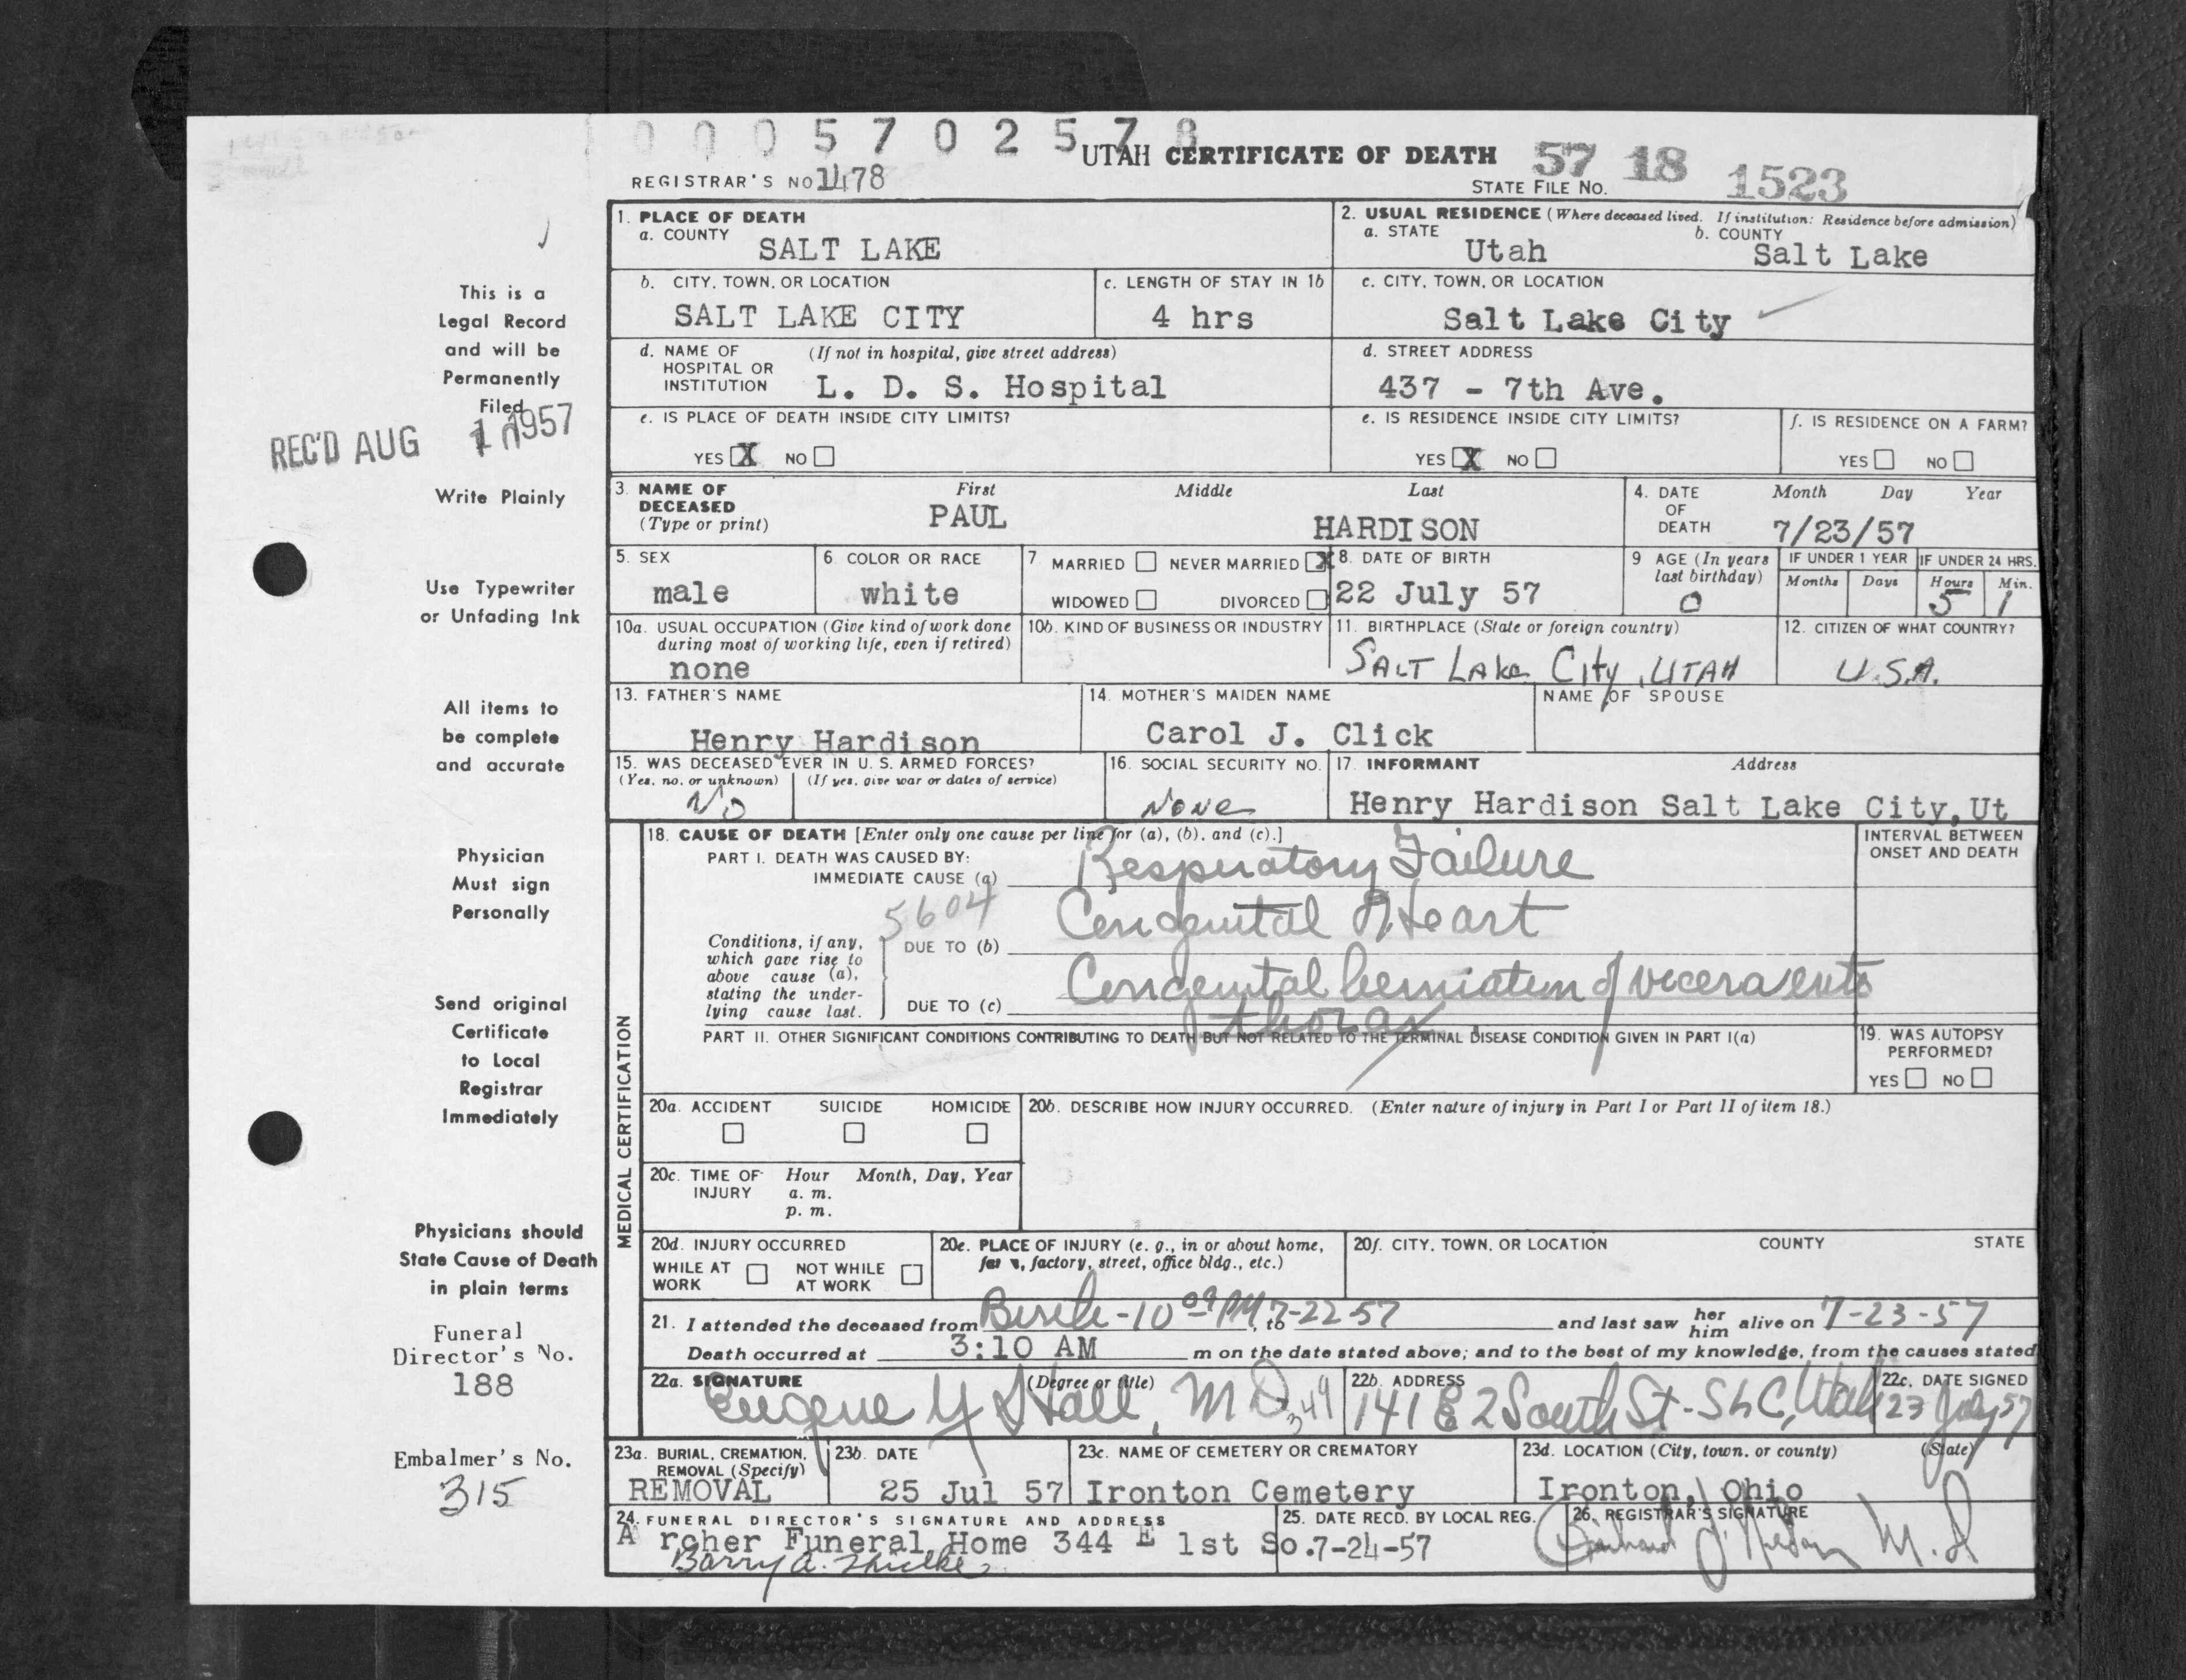 0005702578
UTAH CERTIFICATE OF DEATH
57 18 1523
REGISTRAR'S NO 1478
STATE FILE NO.
1. PLACE OF DEATH
a. COUNTY
SALT LAKE
2. USUAL RESIDENCE (Where deceased lived. If institution: Residence before admission)
a. STATE Utah b. COUNTY Salt Lake
b. CITY, TOWN, OR LOCATION
SALT LAKE CITY
c. LENGTH OF STAY IN 1b
4 hrs
c. CITY, TOWN, OR LOCATION
Salt Lake City
d. NAME OF HOSPITAL OR INSTITUTION (If not in hospital, give street address)
L. D. S. Hospital
d. STREET ADDRESS
437 - 7th Ave.
e. IS PLACE OF DEATH INSIDE CITY LIMITS?
YES X NO
e. IS RESIDENCE INSIDE CITY LIMITS?
YES X NO
f. IS RESIDENCE ON A FARM?
YES NO
3. NAME OF DECEASED (Type or print)
First Middle Last
PAUL HARDISON
4. DATE OF DEATH
Month Day Year
7/23/57
5. SEX
male
6. COLOR OR RACE
white
7 MARRIED NEVER MARRIED X
WIDOWED DIVORCED
8. DATE OF BIRTH
22 July 57
9 AGE (In years last birthday)
0
IF UNDER 1 YEAR
Months Days
IF UNDER 24 HRS.
Hours Min.
5 1
10a. USUAL OCCUPATION (Give kind of work done during most of working life, even if retired)
none
10b. KIND OF BUSINESS OR INDUSTRY
11. BIRTHPLACE (State or foreign country)
SALT LAke City, UTAH
12. CITIZEN OF WHAT COUNTRY?
U.S.A.
13. FATHER'S NAME
Henry Hardison
14. MOTHER'S MAIDEN NAME
Carol J. Click
NAME OF SPOUSE
15. WAS DECEASED EVER IN U. S. ARMED FORCES?
(Yes, no, or unknown) (If yes, give war or dates of service)
No
16. SOCIAL SECURITY NO.
None
17. INFORMANT Address
Henry Hardison Salt Lake City, Ut
MEDICAL CERTIFICATION
18. CAUSE OF DEATH [Enter only one cause per line for (a), (b), and (c).]
INTERVAL BETWEEN ONSET AND DEATH
PART I. DEATH WAS CAUSED BY:
IMMEDIATE CAUSE (a) Respiratory Failure
5604
Conditions, if any, which gave rise to above cause (a), stating the underlying cause last.
DUE TO (b) Congenital Heart
DUE TO (c) Congenital herniation of vicera into
thorax
PART II. OTHER SIGNIFICANT CONDITIONS CONTRIBUTING TO DEATH BUT NOT RELATED TO THE TERMINAL DISEASE CONDITION GIVEN IN PART I(a)
19. WAS AUTOPSY PERFORMED?
YES NO
20a. ACCIDENT SUICIDE HOMICIDE
20b. DESCRIBE HOW INJURY OCCURRED. (Enter nature of injury in Part I or Part II of item 18.)
20c. TIME OF INJURY Hour Month, Day, Year
a. m.
p. m.
20d. INJURY OCCURRED
WHILE AT WORK NOT WHILE AT WORK
20e. PLACE OF INJURY (e. g., in or about home, factory, street, office bldg., etc.)
20f. CITY, TOWN, OR LOCATION COUNTY STATE
21. I attended the deceased from Birth - 10 09 PM, to 7-22-57 and last saw her him alive on 7-23-57
Death occurred at 3:10 AM m on the date stated above; and to the best of my knowledge, from the causes stated
22a. SIGNATURE (Degree or title)
Eugene Y Hall, MD 349
22b. ADDRESS
141 E 2 South St - SLC, Utah
22c. DATE SIGNED
23 July 57
23a. BURIAL, CREMATION, REMOVAL (Specify)
REMOVAL
23b. DATE
25 Jul 57
23c. NAME OF CEMETERY OR CREMATORY
Ironton Cemetery
23d. LOCATION (City, town, or county) (State)
Ironton, Ohio
24. FUNERAL DIRECTOR'S SIGNATURE AND ADDRESS
Archer Funeral Home 344 E 1st So.
Barry A.
25. DATE RECD. BY LOCAL REG.
7-24-57
26. REGISTRAR'S SIGNATURE
M.D
This is a
Legal Record
and will be
Permanently
Filed
REC'D AUG 1957
Write Plainly
Use Typewriter
or Unfading Ink
All items to
be complete
and accurate
Physician
Must sign
Personally
Send original
Certificate
to Local
Registrar
Immediately
Physicians should
State Cause of Death
in plain terms
Funeral
Director's No.
188
Embalmer's No.
315